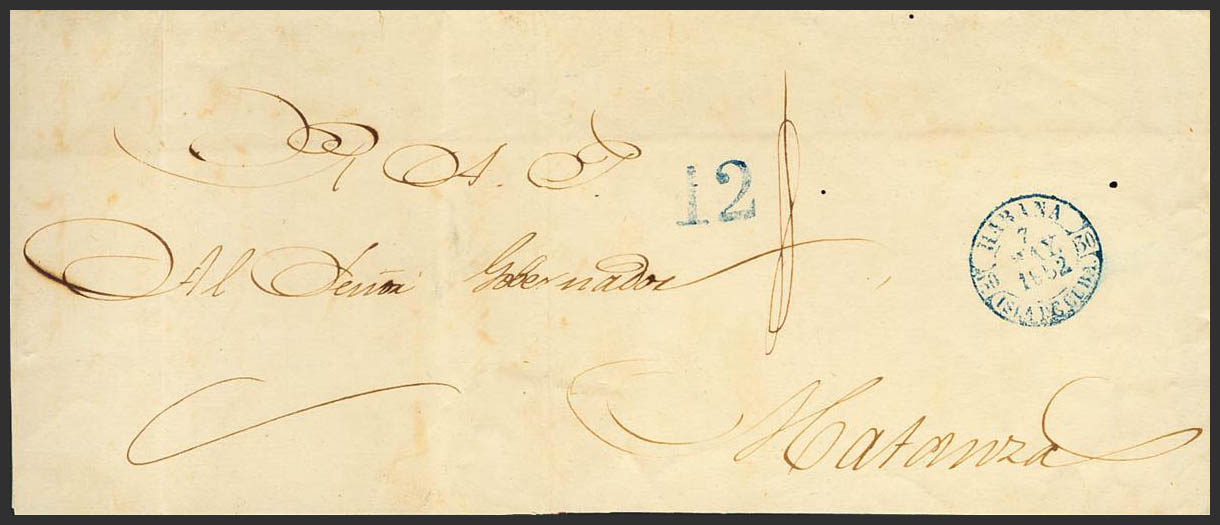 A. P.
12
Al Señor Gobernador
HABANA
7
MAY.
1852
ISLA DE CUBA
Matanza